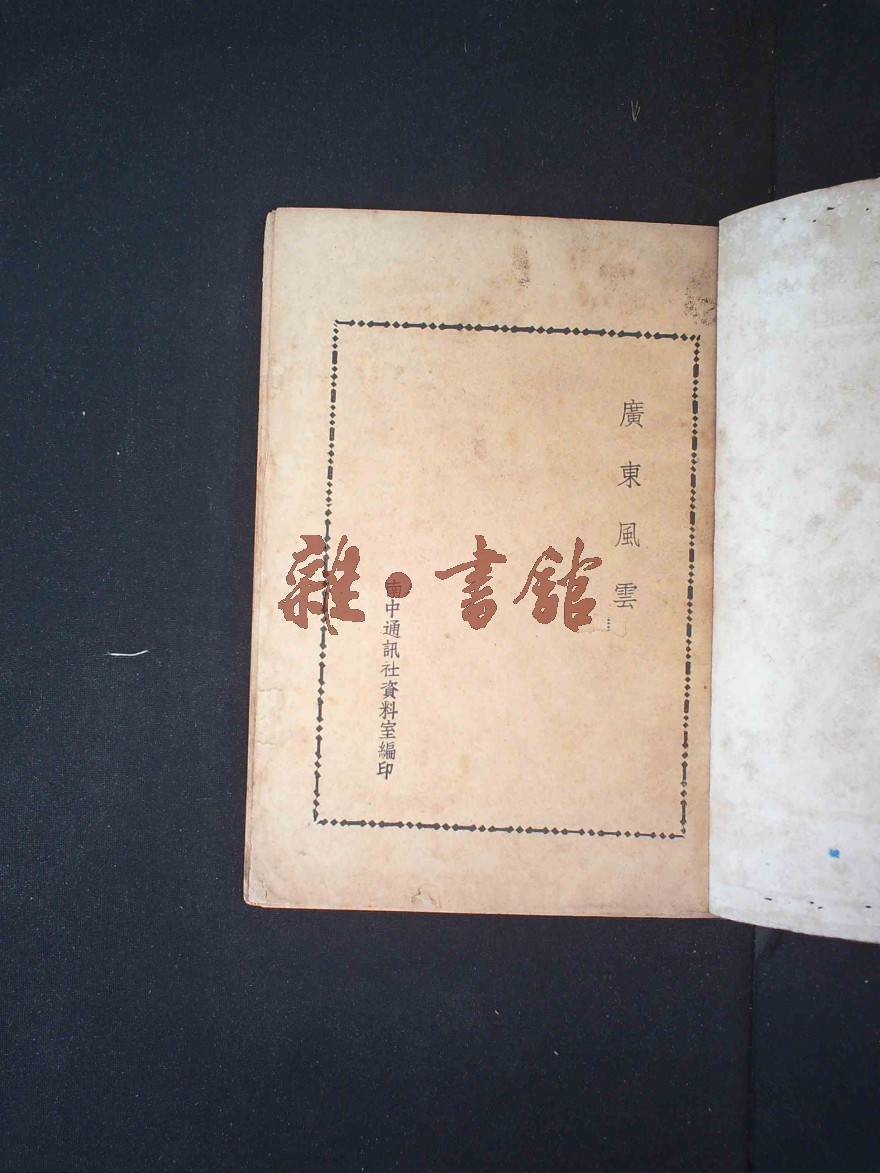 廣東風雲
南中通訊社資料室編印
雜·書館